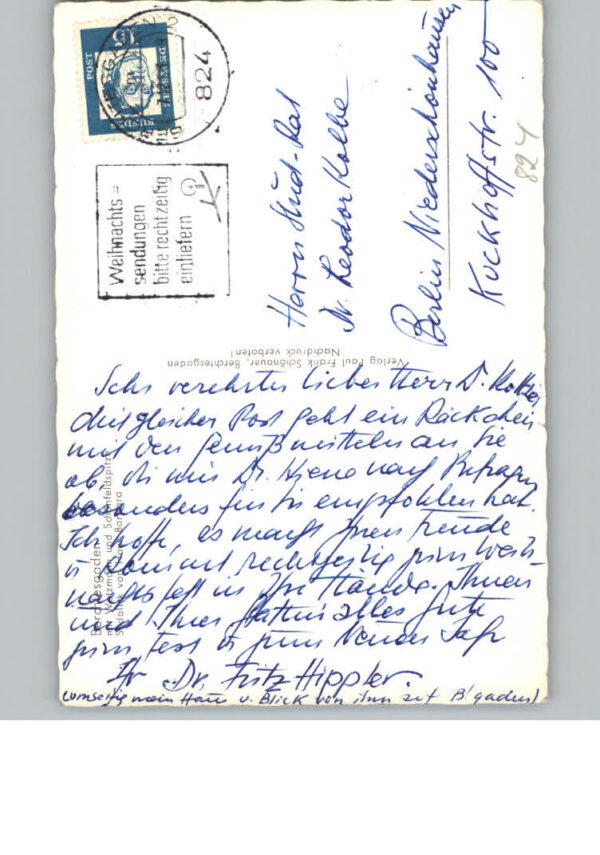 POST
15
BUNDES
824
Weihnachts=
sendungen
bitte rechtzeitig
einliefern
Herrn Stud-Rat
Dr. Leodor Kolbe
Berlin Niederschönhausen
Kuckhoffstr. 100
824
Verlag Paul Frank Schönauer, Berchtesgaden
Nachdruck verboten!
Sehr verehrter lieber Herr Dr. Kolbe,
mit gleicher Post geht ein Päckchen
mit den Genußmitteln an Sie
ab, die mir Dr. Hiena nach Befragen
besonders für Sie empfohlen hat.
Ich hoffe, es macht Ihnen Freude
u. kommt rechtzeitig zum Weih-
nachtsfest in Ihre Hände. Ihnen
und Ihrer Gattin alles Gute
zum Fest u. zum Neuen Jahr
Ihr Dr. Fritz Hippler.
(umseitig mein Haus u. Blick von ihm auf B'gaden)
Berchtesgaden
mit Watzmann und Schönfeldspitze